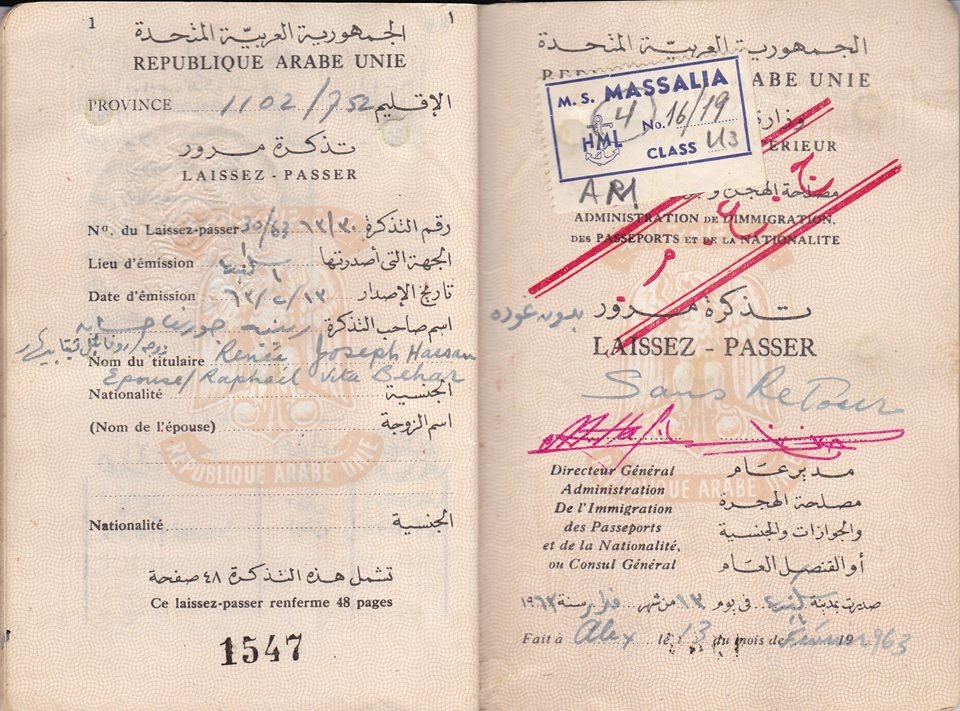 1
١
الجمهورية العربية المتحدة
REPUBLIQUE ARABE UNIE
PROVINCE 1102/752 الإقليم
تذكرة مرور
LAISSEZ - PASSER
Nº. du Laissez-passer 30/63 ٦٣/٣٠ رقم التذكرة
Lieu d'émission الجهة التى أصدرتها
Date d'émission ٦٣/٢/١٣ تاريخ الإصدار
اسم صاحب التذكرة
Nom du titulaire Renée Joseph Hassan
Epouse/Raphaël Vita Behar
Nationalité الجنسية
(Nom de l'épouse) اسم الزوجة
REPUBLIQUE ARABE UNIE
Nationalité الجنسية
تشمل هذه التذكرة ٤٨ صفحة
Ce laissez-passer renferme 48 pages
1547
الجمهورية العربية المتحدة
ABE UNIE
M. S. MASSALIA
4 No. 16/19
HML
CLASS U3
ARM
وزارة
ÉRIEUR
مصلحة الهجرة
ADMINISTRATION DE L'IMMIGRATION,
DES PASSEPORTS ET DE LA NATIONALITE
تذكرة مرور بدون عوده
LAISSEZ - PASSER
Sans Retour
Directeur Général مدير عام
Administration مصلحة الهجرة
De l'Immigration
des Passeports والجوازات والجنسية
et de la Nationalité,
ou Consul Général أو القنصل العام
REPUBLIQUE ARABE UNIE
صدرت بمدينة فى يوم ١٣ من شهر فبراير سنة ١٩٦٣
Fait à Alex le 13 du mois de Février 1963